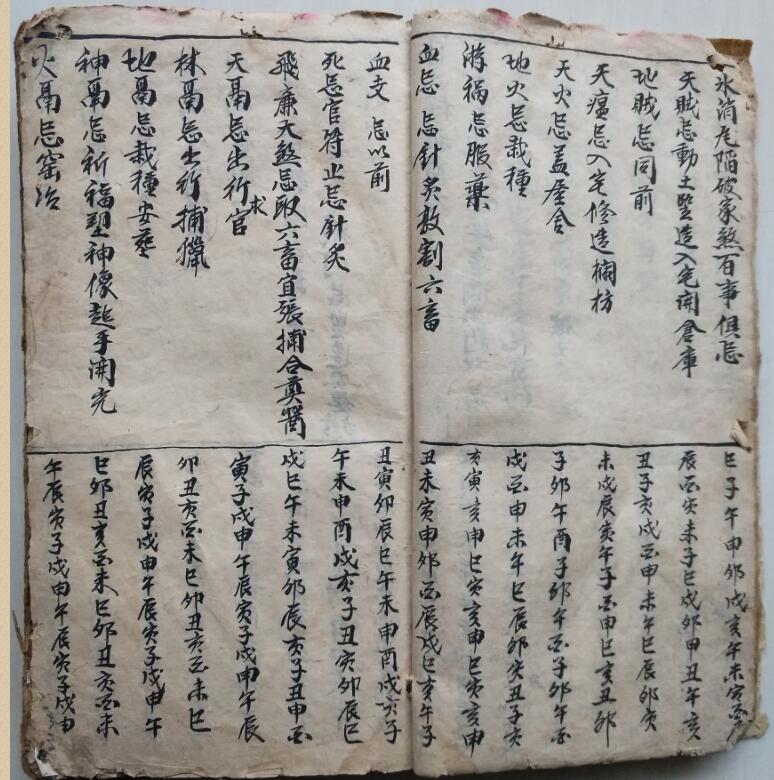 氷消瓦陷破家煞百事俱忌
巳子午申卯戌亥午未寅酉辰
天賊忌動土竪造入宅開倉庫
辰酉寅未子巳戌卯申丑午亥
地賊忌同前
丑子亥戌酉申未午巳辰卯寅
天瘟忌入宅修造欄枋
未戌辰寅午子酉申巳亥丑卯
天火忌蓋屋舍
子卯午酉子卯午酉子卯午酉
地火忌栽種
戌酉申未午巳辰卯寅丑子亥
游禍忌服藥
寅亥申巳寅亥申巳寅亥申
血忌 忌針炙敖割六畜
丑未寅申卯酉辰戌巳亥午子
血支 忌以前
丑寅卯辰巳午未申酉戌亥子
死忌官符止忌針炙
午未申酉戌亥子丑寅卯辰巳
飛廉大煞忌取六畜宜張捕合奠醬
戌巳午未寅卯辰亥子丑申酉
天鬲忌出行求官
寅子戌申午辰寅子戌申午辰
林鬲忌出行捕獵
卯丑亥酉未巳卯丑亥酉未巳
地鬲忌栽種安塟
辰寅子戌申午辰寅子戌申午
神鬲忌祈福塑神像起手開光
巳卯丑亥酉未巳卯丑亥酉未
火鬲忌窑冶
午辰寅子戌申午辰寅子戌申